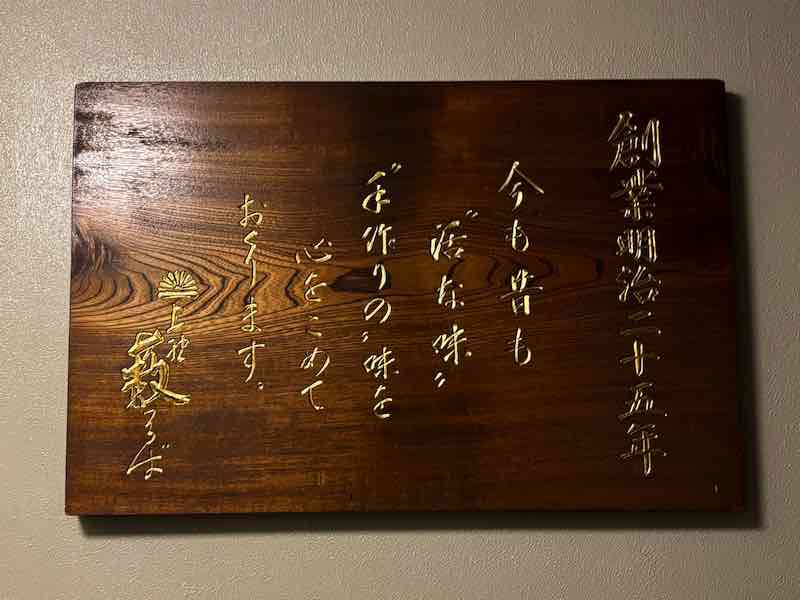 創業明治二十五年
今も昔も
〝活な味〟
〝手作りの〟味を
心をこめて
おくります。
上野 藪そば